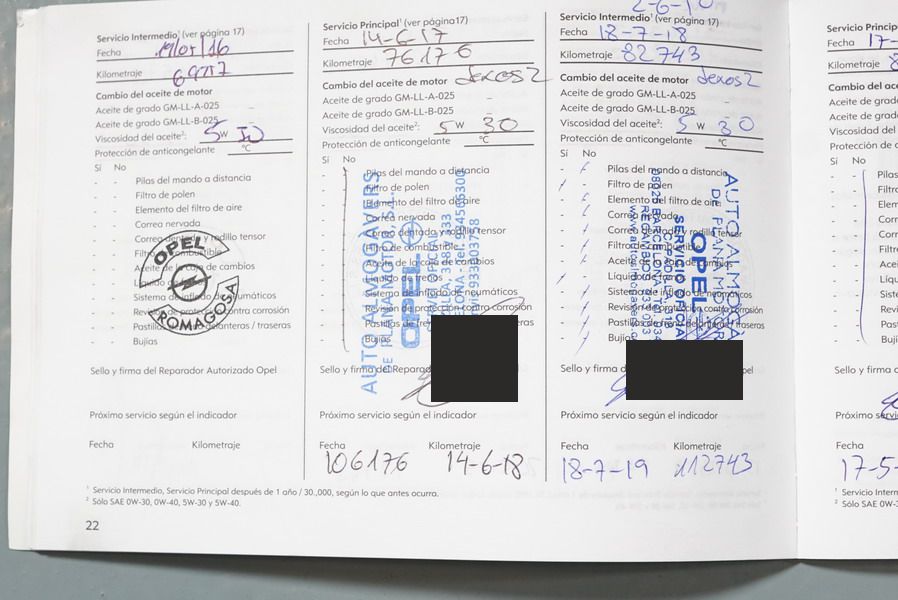 Servicio Intermedio¹ (ver página 17)
Fecha
Kilometraje
Cambio del aceite de motor
Aceite de grado GM-LL-A-025
Aceite de grado GM-LL-B-025
Viscosidad del aceite²: 5 W 30
Protección de anticongelante °C
Sí No
Pilas del mando a distancia
Filtro de polen
Elemento del filtro de aire
Correa nervada
Correa dentada y rodillo tensor
Filtro de combustible
Aceite de la caja de cambios
Líquido de frenos
Sistema de inflado de neumáticos
Revisión de protección contra corrosión
Pastillas de freno delanteras / traseras
Bujías
OPEL
ROMAGOSA
Sello y firma del Reparador Autorizado Opel
Próximo servicio según el indicador
Fecha Kilometraje
Servicio Principal¹ (ver página 17)
Fecha 14-6-17
Kilometraje 76176
Cambio del aceite de motor dexos2
Aceite de grado GM-LL-A-025
Aceite de grado GM-LL-B-025
Viscosidad del aceite²: 5 W 30
Protección de anticongelante °C
Sí No
Pilas del mando a distancia
Filtro de polen
Elemento del filtro de aire
Correa nervada
Correa dentada y rodillo tensor
Filtro de combustible
Aceite de la caja de cambios
Líquido de frenos
Sistema de inflado de neumáticos
Revisión de protección contra corrosión
Pastillas de
Bujías
AUTO ALMOGÀVERS
DE PLANA MOTOR, S.L.
OPEL
SERVICIO OFICIAL
Sello y firma del Reparad
Próximo servicio según el indicador
Fecha Kilometraje
106176 14-6-18
2-6-10
Servicio Intermedio¹ (ver página 17)
Fecha 18-7-18
Kilometraje 82743
Cambio del aceite de motor dexos2
Aceite de grado GM-LL-A-025
Aceite de grado GM-LL-B-025
Viscosidad del aceite²: 5 W 30
Protección de anticongelante °C
Sí No
Pilas del mando a distancia
Filtro de polen
Elemento del filtro de aire
Correa nervada
Correa dentada y rodillo tensor
Filtro de combustible
Aceite de la caja de cambios
Líquido de frenos
Sistema de inflado de neumáticos
Revisión de protección contra corrosión
Pastillas de freno delanteras / traseras
Bujías
OPEL
SERVICIO OFICIAL
Sello y firma d pel
Próximo servicio según el indicador
Fecha Kilometraje
18-7-19 112743
Servicio Princip
Fecha 17-
Kilometraje 8
Cambio del ace
Aceite de grad
Aceite de grad
Viscosidad del
Protección de
Sí No
Pilas
Filtro
Elem
Corr
Corr
Filtr
Acei
Líqu
Sist
Revi
Past
Bují
Sello y firma c
Próximo servi
Fecha
17-5-
¹ Servicio Intermedio, Servicio Principal después de 1 año / 30.,000, según lo que antes ocurra.
² Sólo SAE 0W-30, 0W-40, 5W-30 y 5W-40.
¹ Servicio Interm
² Sólo SAE 0W-3
22